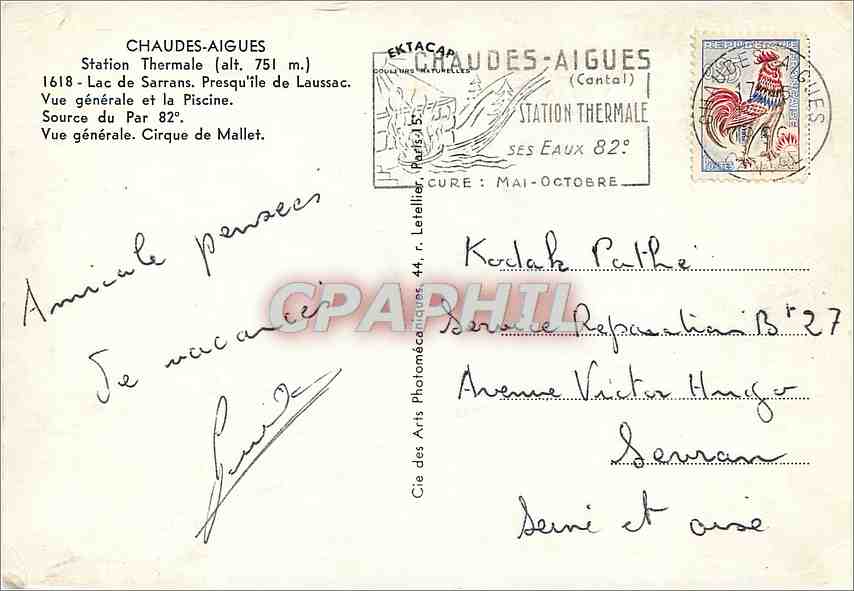 CHAUDES-AIGUES
Station Thermale (alt. 751 m.)
1618 - Lac de Sarrans. Presqu'île de Laussac.
Vue générale et la Piscine.
Source du Par 82°.
Vue générale. Cirque de Mallet.
EKTACAP
COULEURS NATURELLES
CHAUDES-AIGUES
(Cantal)
STATION THERMALE
SES EAUX 82°
CURE : MAI-OCTOBRE
CHAUDES-AIGUES
Amicale pensées
De vacances
CPAPHIL
Cie des Arts Photomécaniques, 44, r. Letellier, Paris-15
Kodak Pathé
Service Reparation Bt 27
Avenue Victor Hugo
Sevran
Seine et oise